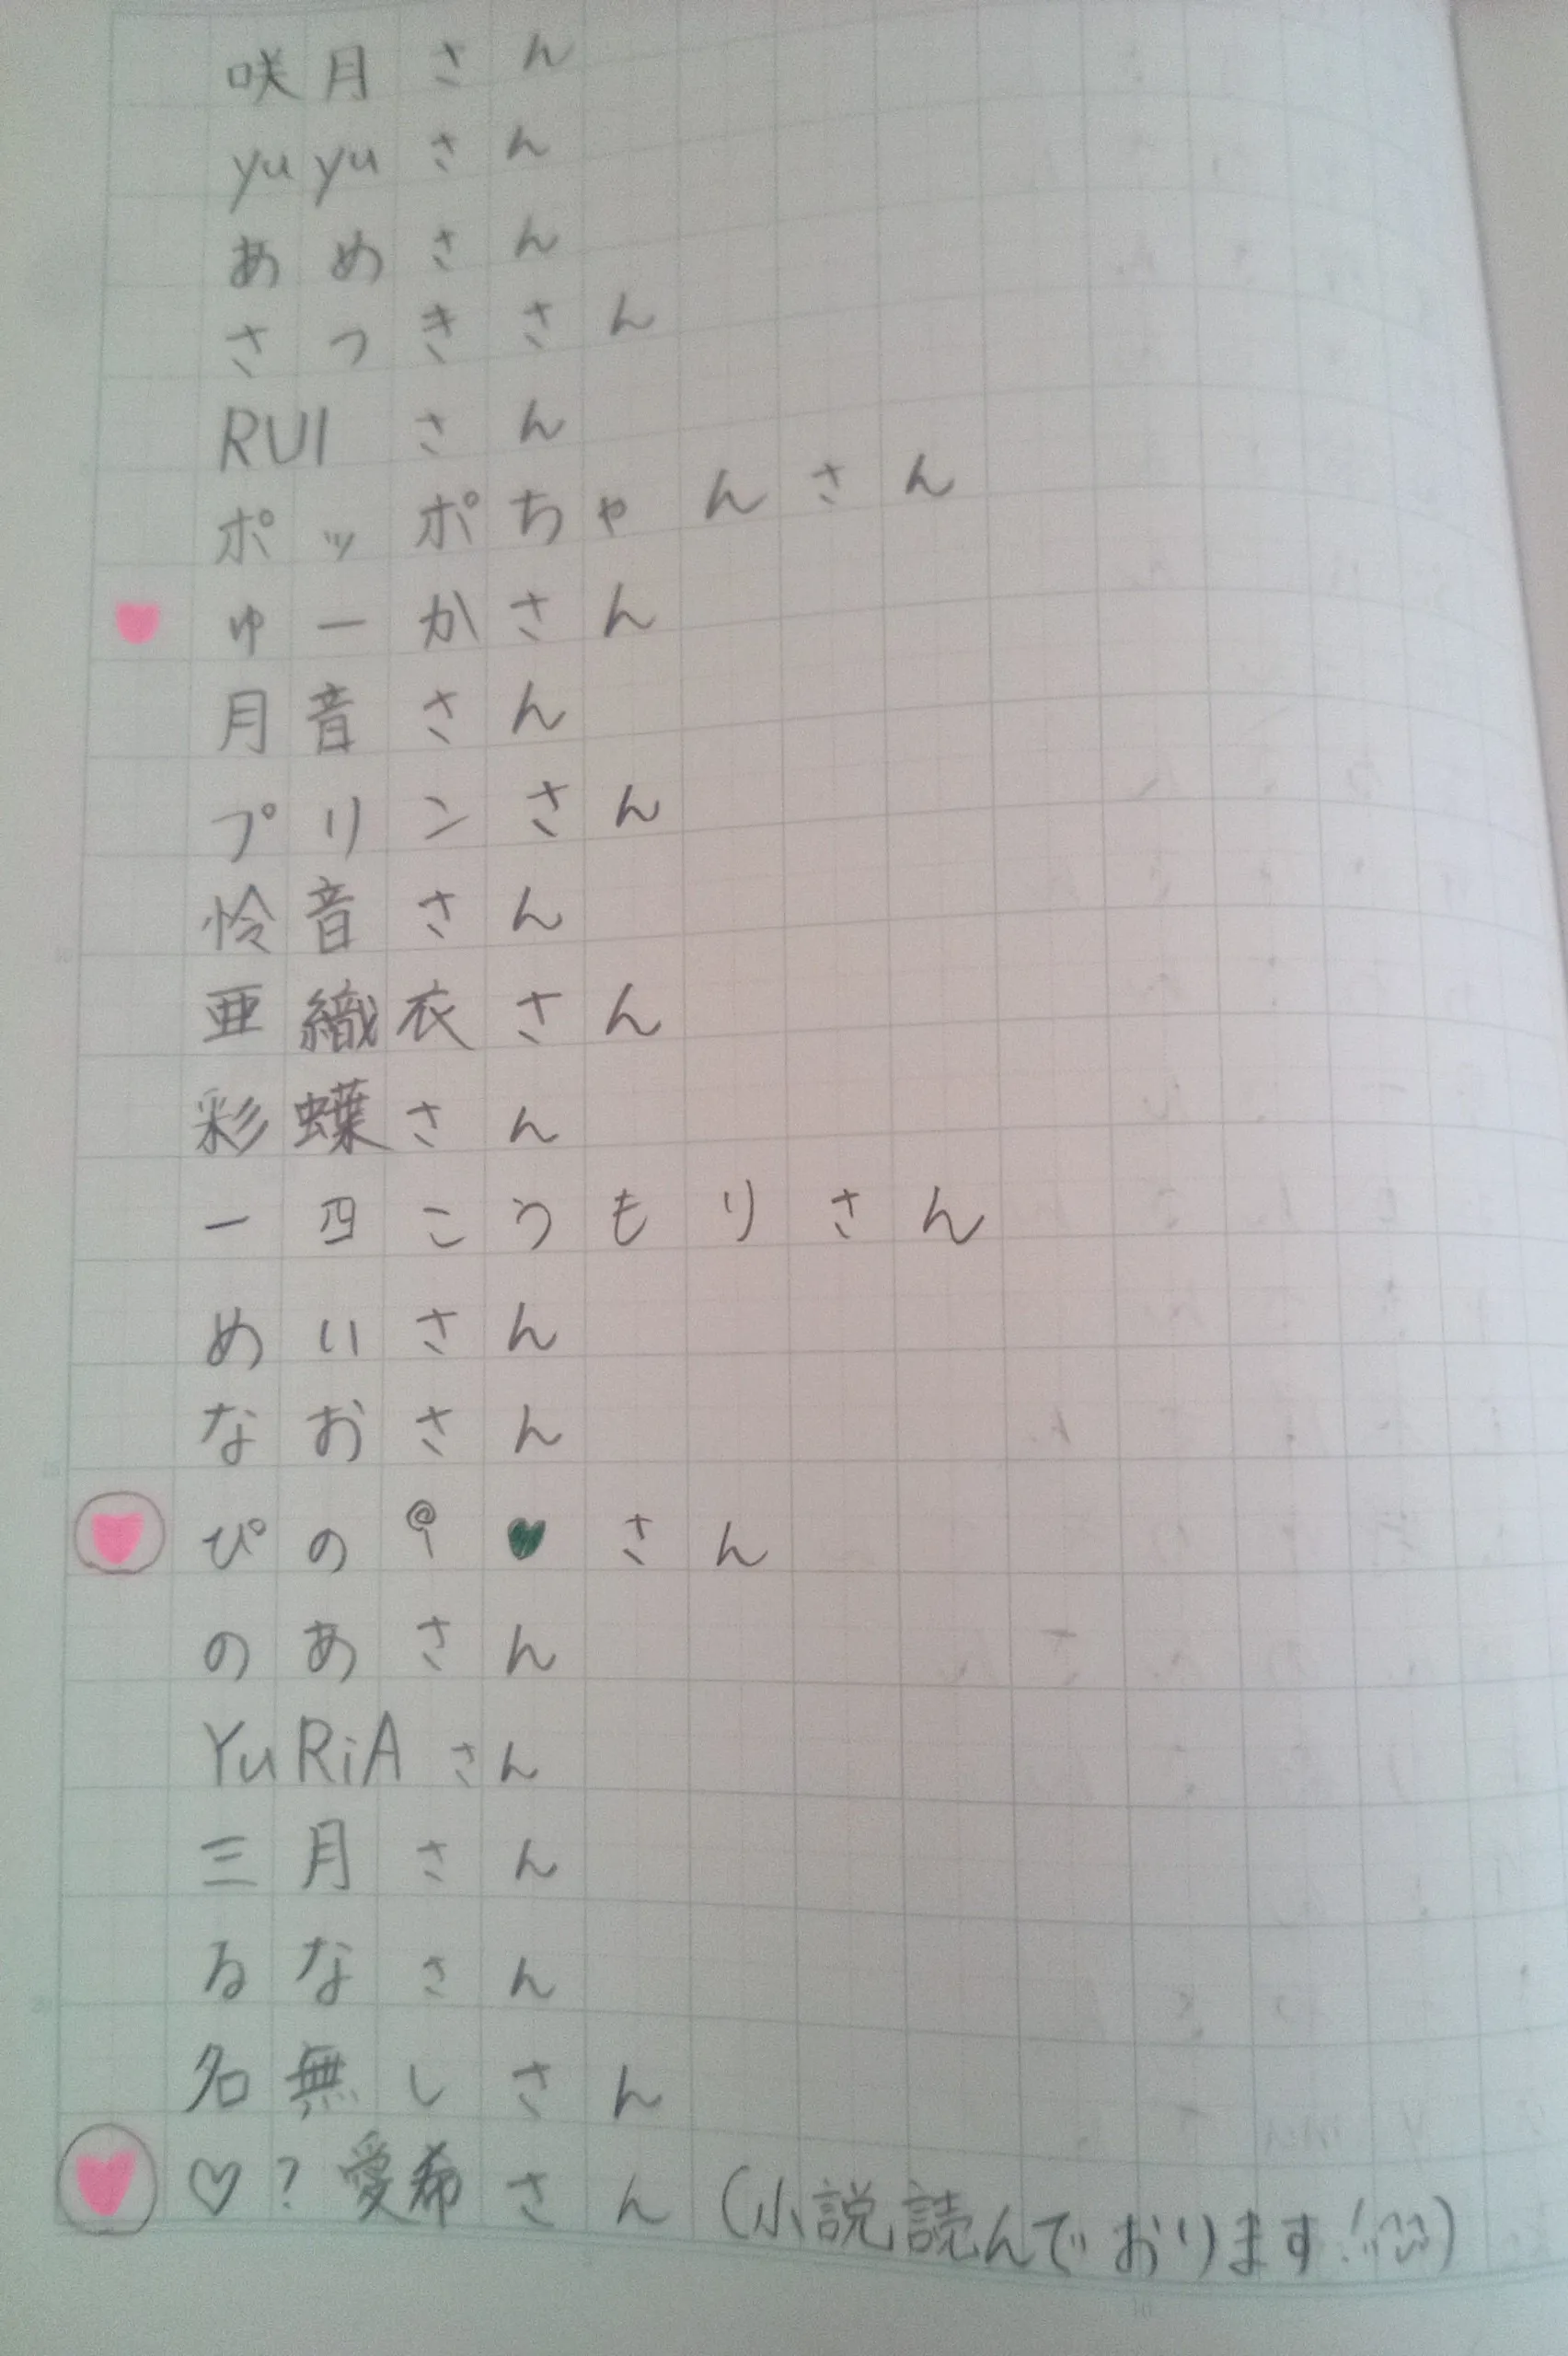 咲月さん
yuyuさん
あめさん
さつきさん
RUIさん
ポッポちゃんさん
ゆーかさん
月音さん
プリンさん
怜音さん
亜織衣さん
彩蝶さん
一四こうもりさん
めいさん
なおさん
ぴの🍭♥さん
のあさん
YuRiAさん
三月さん
るなさん
名無しさん
♡?愛希さん(小説読んでおります!